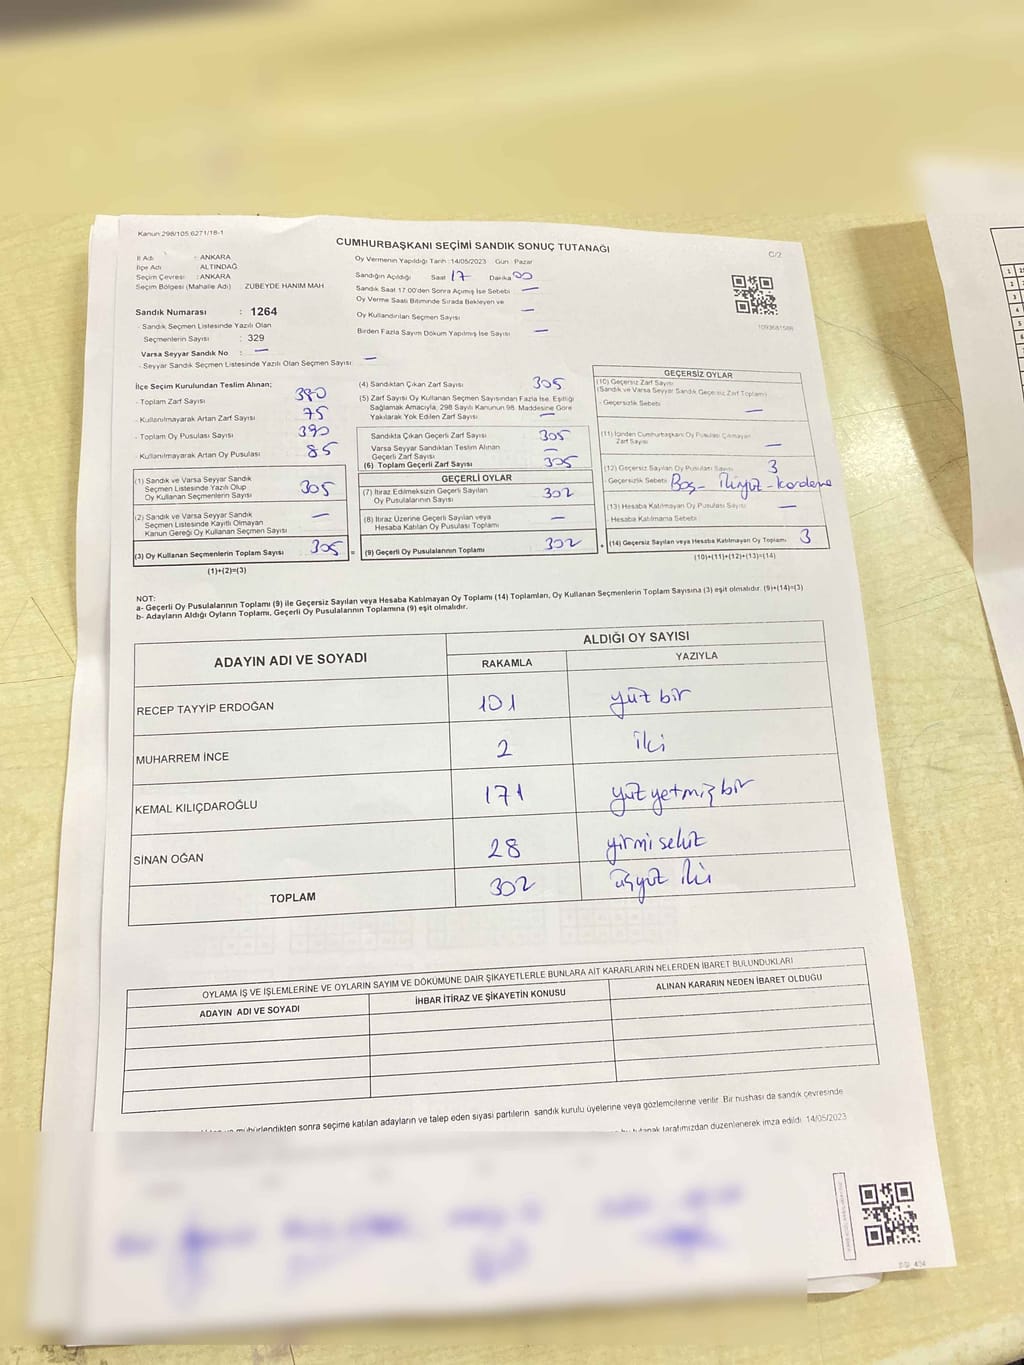 Kanun 298/105 6271/18-1
CUMHURBAŞKANI SEÇİMİ SANDIK SONUÇ TUTANAĞI
C/2
İl Adı : ANKARA
İlçe Adı : ALTINDAĞ
Seçim Çevresi : ANKARA
Seçim Bölgesi (Mahalle Adı) ZÜBEYDE HANIM MAH
Sandık Numarası : 1264
Sandık Seçmen Listesinde Yazılı Olan
Seçmenlerin Sayısı : 329
Varsa Seyyar Sandık No : —
- Seyyar Sandık Seçmen Listesinde Yazılı Olan Seçmen Sayısı: —
Oy Vermenin Yapıldığı Tarih :14/05/2023 Gün : Pazar
Sandığın Açıldığı Saat 17 Dakika 00
Sandık Saat 17:00'den Sonra Açılmış İse Sebebi —
Oy Verme Saati Bitiminde Sırada Bekleyen ve
Oy Kullandırılan Seçmen Sayısı —
Birden Fazla Sayım Döküm Yapılmış İse Sayısı —
1093681588
İlçe Seçim Kurulundan Teslim Alınan;
- Toplam Zarf Sayısı 380
- Kullanılmayarak Artan Zarf Sayısı 75
- Toplam Oy Pusulası Sayısı 390
- Kullanılmayarak Artan Oy Pusulası 85
(1) Sandık ve Varsa Seyyar Sandık
Seçmen Listesinde Yazılı Olup
Oy Kullanan Seçmenlerin Sayısı 305
(2) Sandık ve Varsa Seyyar Sandık
Seçmen Listesinde Kayıtlı Olmayan
Kanun Gereği Oy Kullanan Seçmen Sayısı —
(3) Oy Kullanan Seçmenlerin Toplam Sayısı 305 =
(1)+(2)=(3)
(4) Sandıktan Çıkan Zarf Sayısı 305
(5) Zarf Sayısı Oy Kullanan Seçmen Sayısından Fazla İse, Eşitliği
Sağlamak Amacıyla, 298 Sayılı Kanunun 98. Maddesine Göre
Yakılarak Yok Edilen Zarf Sayısı —
Sandıkta Çıkan Geçerli Zarf Sayısı 305
Varsa Seyyar Sandıktan Teslim Alınan
Geçerli Zarf Sayısı —
(6) Toplam Geçerli Zarf Sayısı 305
GEÇERLİ OYLAR
(7) İtiraz Edilmeksizin Geçerli Sayılan
Oy Pusulalarının Sayısı 302
(8) İtiraz Üzerine Geçerli Sayılan veya
Hesaba Katılan Oy Pusulası Toplamı —
(9) Geçerli Oy Pusulalarının Toplamı 302 +
GEÇERSİZ OYLAR
(10) Geçersiz Zarf Sayısı
(Sandık ve Varsa Seyyar Sandık Geçersiz Zarf Toplamı)
- Geçersizlik Sebebi —
(11) İçinden Cumhurbaşkanı Oy Pusulası Çıkmayan
Zarf Sayısı —
(12) Geçersiz Sayılan Oy Pusulası Sayısı 3
- Geçersizlik Sebebi Boş -
(13) Hesaba Katılmayan Oy Pusulası Sayısı —
Hesaba Katılmama Sebebi
(14) Geçersiz Sayılan veya Hesaba Katılmayan Oy Toplamı 3
(10)+(11)+(12)+(13)=(14)
NOT:
a- Geçerli Oy Pusulalarının Toplamı (9) ile Geçersiz Sayılan veya Hesaba Katılmayan Oy Toplamı (14) Toplamları, Oy Kullanan Seçmenlerin Toplam Sayısına (3) eşit olmalıdır. (9)+(14)=(3)
b- Adayların Aldığı Oyların Toplamı, Geçerli Oy Pusulalarının Toplamına (9) eşit olmalıdır.
ADAYIN ADI VE SOYADI
ALDIĞI OY SAYISI
RAKAMLA YAZIYLA
RECEP TAYYİP ERDOĞAN 101 yüz bir
MUHARREM İNCE 2 iki
KEMAL KILIÇDAROĞLU 171 yüz yetmiş bir
SİNAN OĞAN 28 yirmi sekiz
TOPLAM 302 üçyüz iki
OYLAMA İŞ VE İŞLEMLERİNE VE OYLARIN SAYIM VE DÖKÜMÜNE DAİR ŞİKAYETLERLE BUNLARA AİT KARARLARIN NELERDEN İBARET BULUNDUKLARI
ADAYIN ADI VE SOYADI İHBAR İTİRAZ VE ŞİKAYETİN KONUSU ALINAN KARARIN NEDEN İBARET OLDUĞU
mühürlendikten sonra seçime katılan adayların ve talep eden siyasi partilerin sandık kurulu üyelerine veya gözlemcilerine verilir. Bir nüshası da sandık çevresinde
tutanak tarafımızdan düzenlenerek imza edildi. 14/05/2023